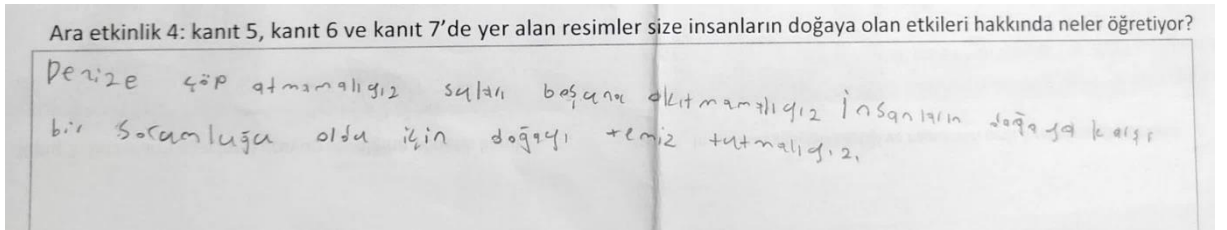 Ara etkinlik 4: kanıt 5, kanıt 6 ve kanıt 7’de yer alan resimler size insanların doğaya olan etkileri hakkında neler öğretiyor?
Denize çöp atmamalıyız suları boşuna akıtmamalıyız İnsanların doğaya karşı
bir soramluğu oldu için doğayı temiz tutmalıyız.